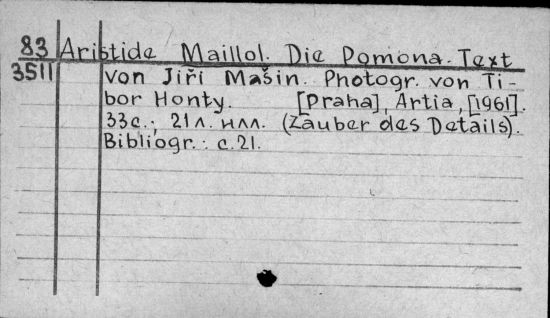 83 Aristide Maillol. Die Pomona. Text
3511 von Jiří Mašin. Photogr. von Ti-
bor Honty. [Praha], Artia, [1961].
33c.; 21 л. илл. (Zauber des Details).
Bibliogr.: c. 21.